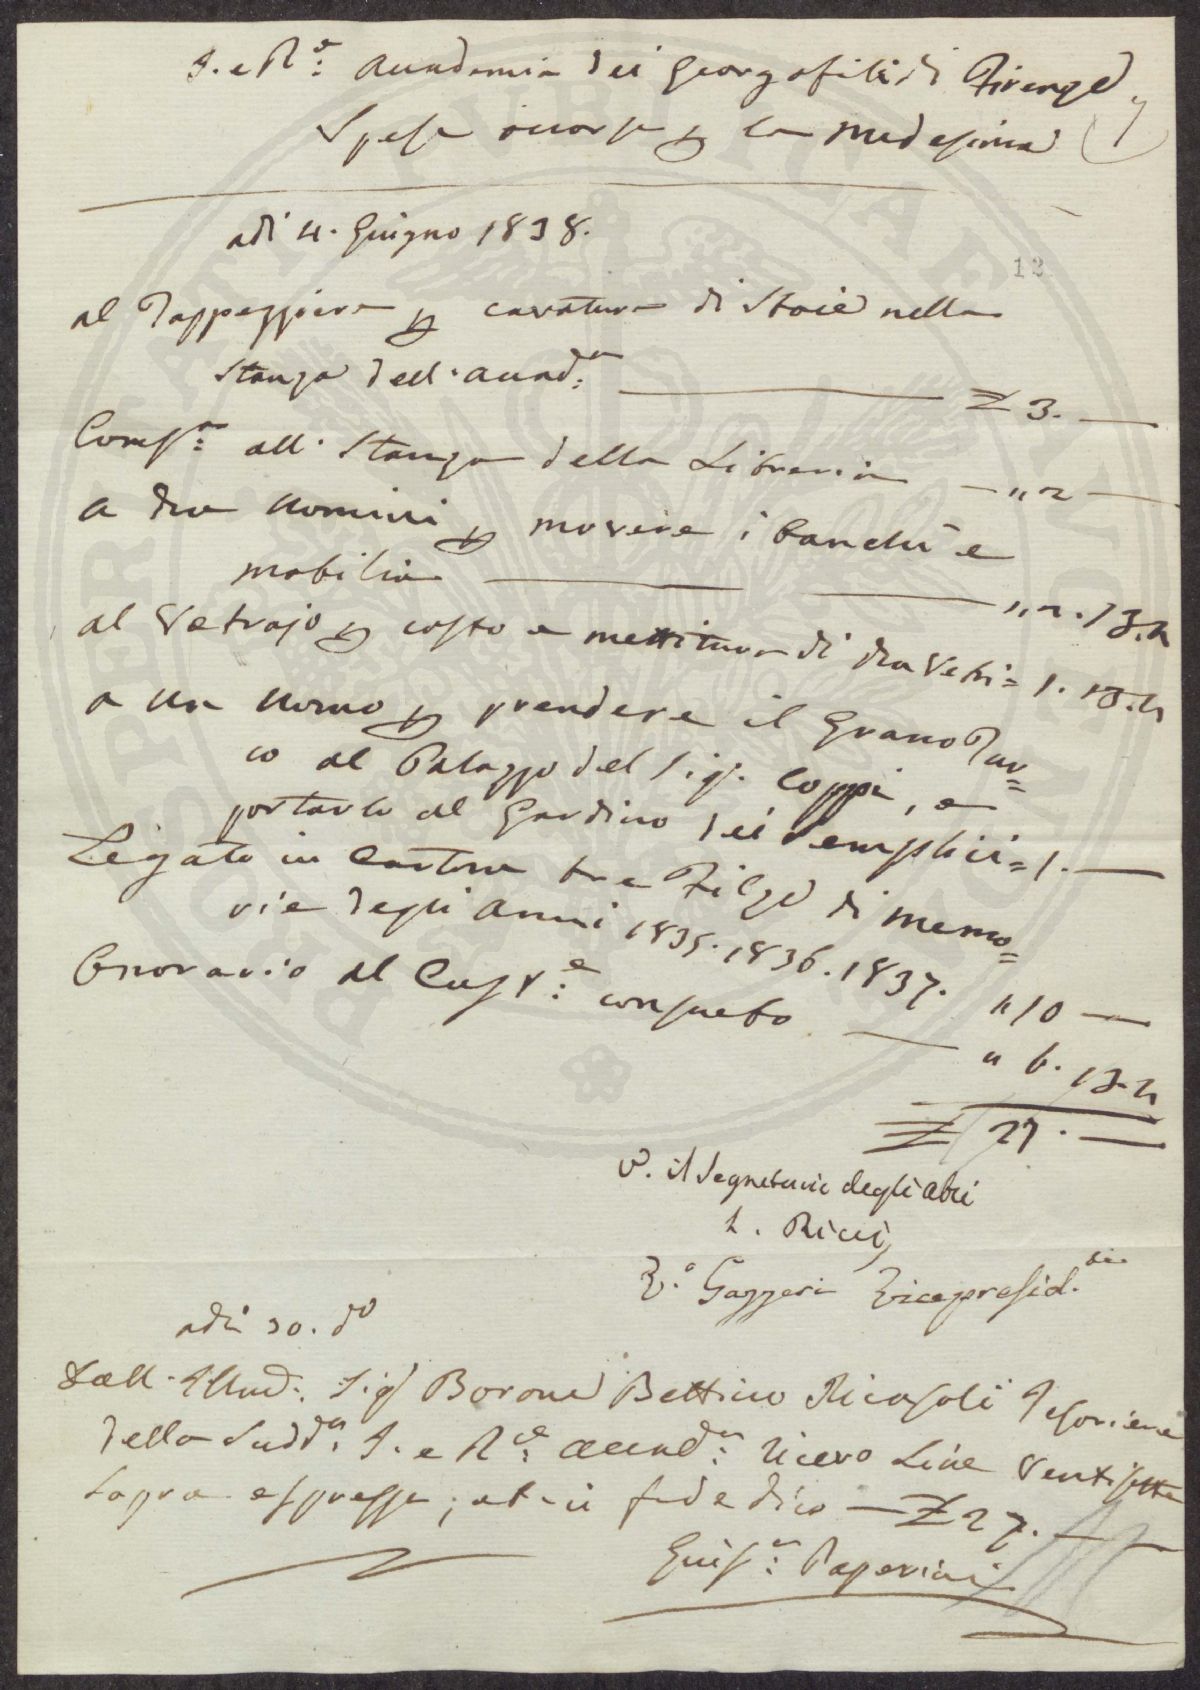 I. e R.e Accademia dei Georgofili di Firenze
Spese occorse per la medesima
7
adi 4. Giugno 1838.
12
al Tappezziere per cavatura di Stoie nella
Stanza dell'Accad:a £ 3. —
Comp:a all. Stanza della Libreria — " 2 —
a due Uomini per movere i banchi e
mobilia — " 2. 13. 4
al Vetrajo per costo e mettitura di due Vetri = 1. 13. 4
a un Uomo per prendere il Grano Tur=
co al Palazzo del Sig. Coppi, e
portarlo al Giardino dei Semplici = 1. —
Legato in Cartone tre Filze di memo=
rie degli Anni 1835. 1836. 1837. " 10 —
Onorario al Cust:e consueto — " 6. 13. 4
£ 27. —
V. il Segretario degli Atti
L. Ricci
V.o Gazzeri Vicepresid.te
adi 30. do
Dall. Illmo: Sig Barone Bettino Ricasoli Tesoriere
della Sudd:a I. e R:e Accad:a ricevo Lire Ventisette
Sopra espresse; ed in fede dico — £ 27. —
Gius:e Paperini